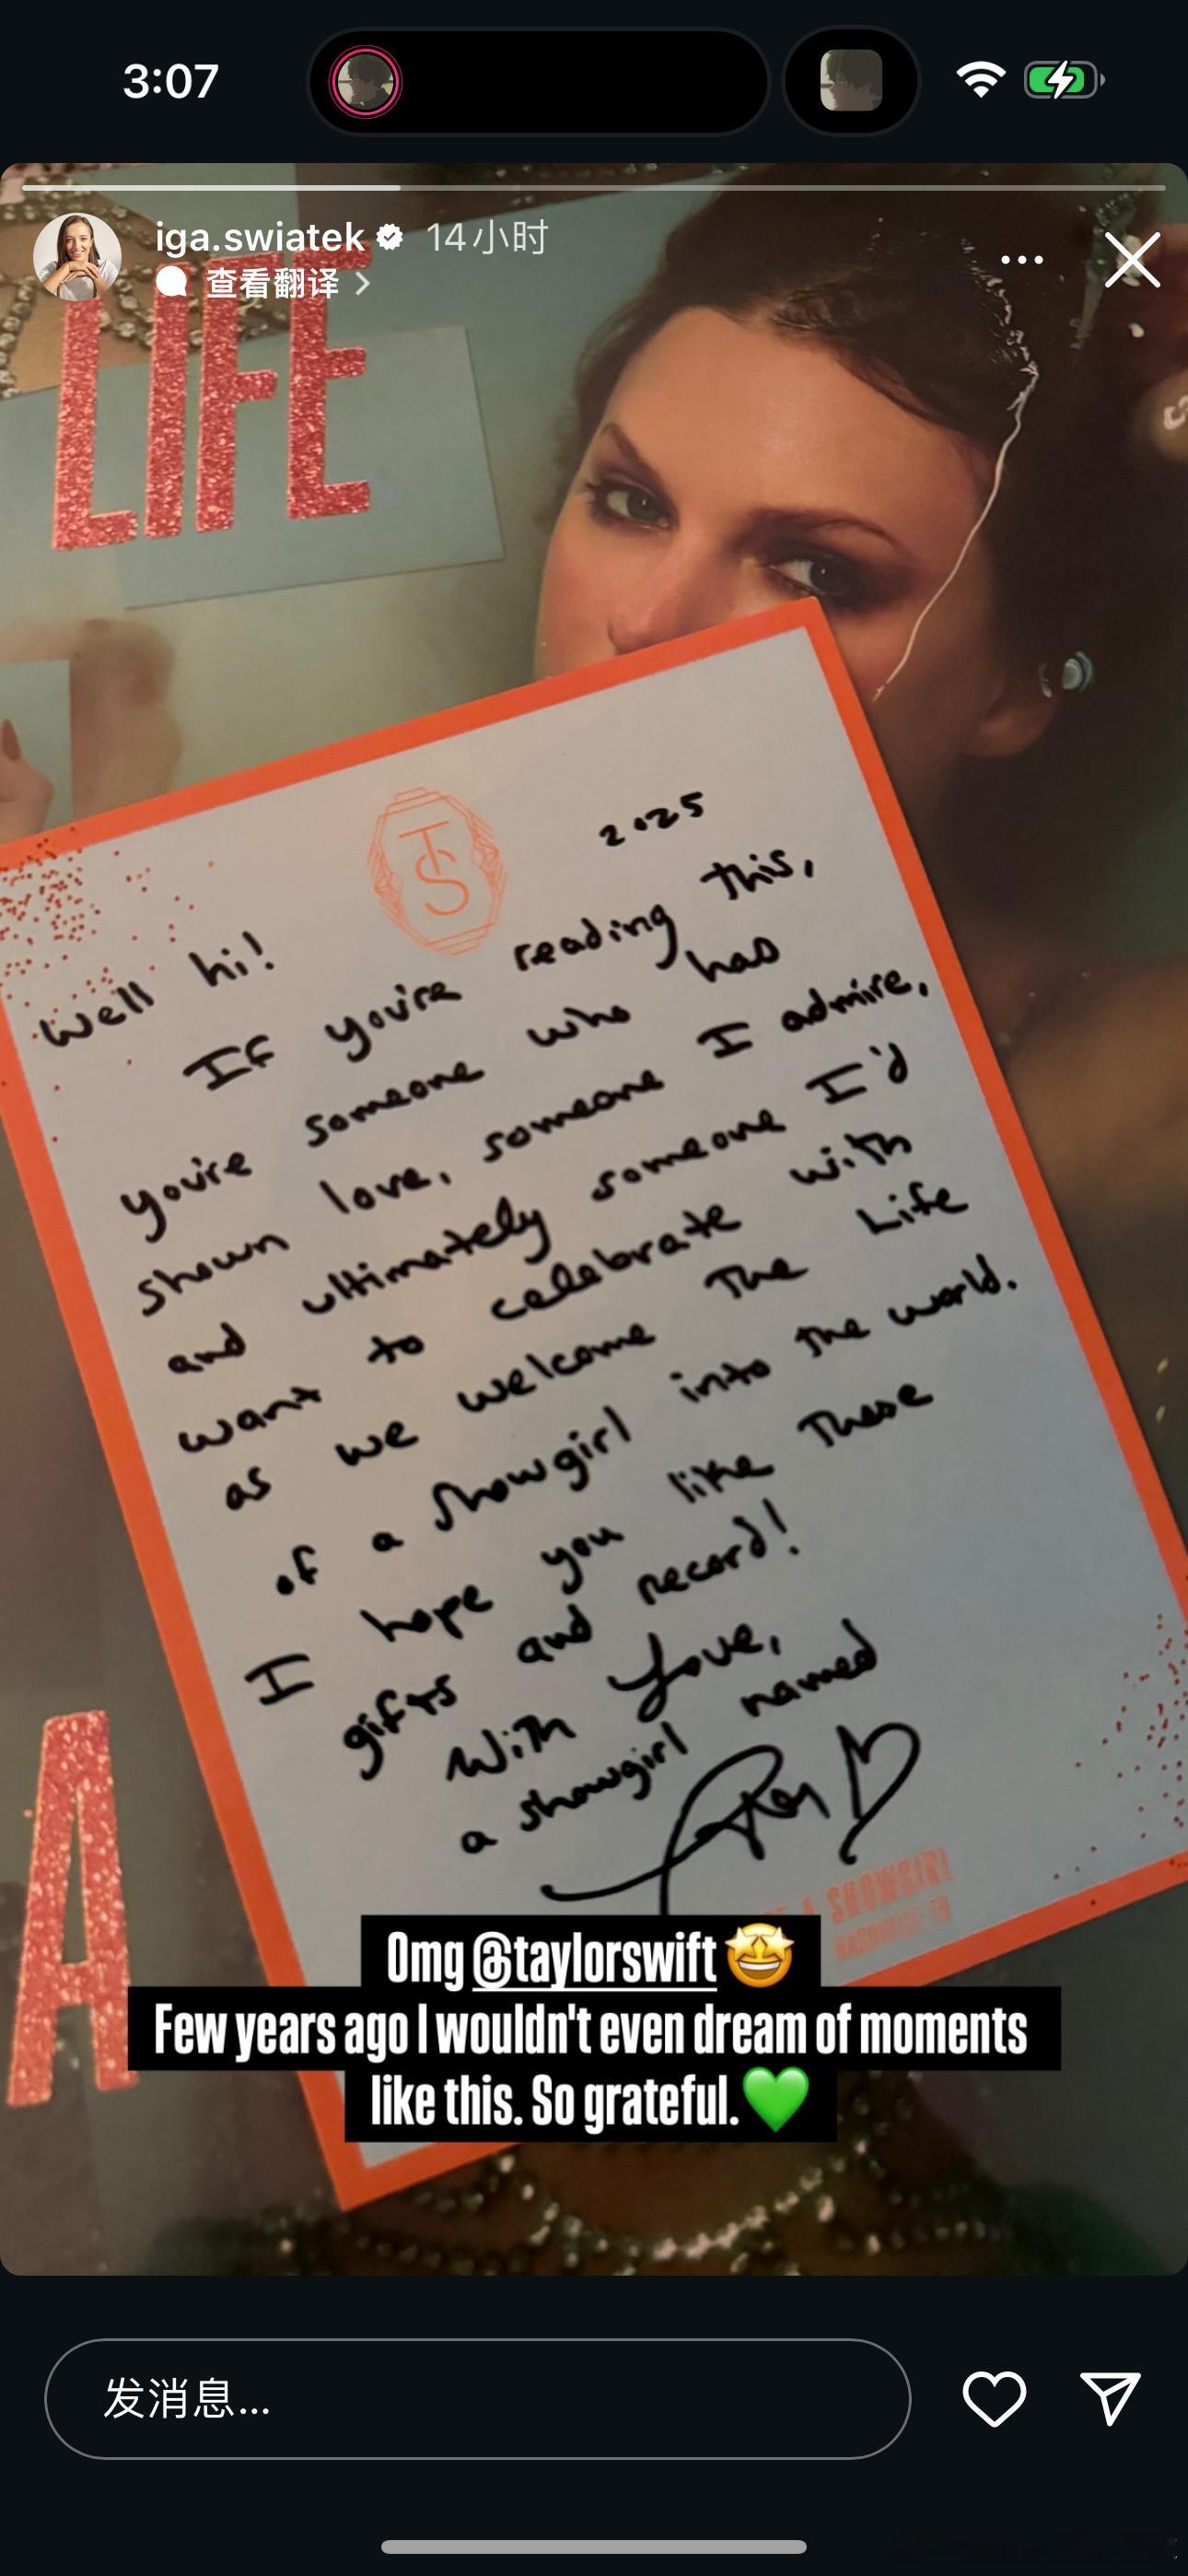 3:07
iga.swiatek 14小时
查看翻译
LIFE
TS
2025
Well hi!
If you're reading this,
you're someone who has
shown love, someone I admire,
and ultimately someone I'd
want to celebrate with
as we welcome The Life
of a Showgirl into the world.
I hope you like these
gifts and record!
With Love,
a showgirl named
A SHOWGIRL
A
Omg @taylorswift🤩
Few years ago I wouldn't even dream of moments
like this. So grateful.💚
发消息...